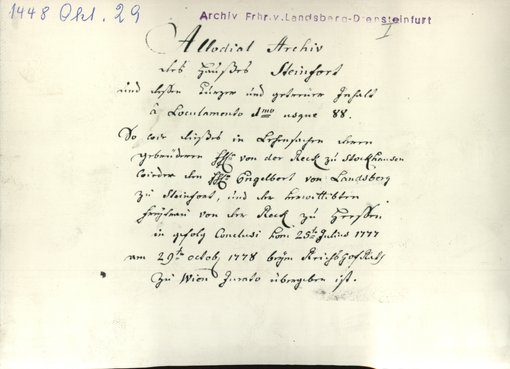 1448 Okt. 29
Archiv Frhr.v.Landsberg-Drensteinfurt
I
Allodial Archiv
des Haußes Steinfort
und dessen kurzer und getreuer Inhalt
â Loculamento 1mo usque 88.
So wie dießes in Lehensachen deren
gebrüderen von der Reck zu Stockhausen
wieder den Engelbert von Landsberg
zu Steinfort, und der verwittibten
freyfrau von der Reck zu Heessen
in gefolg Conclusi vom 25ten Julius 1777
am 29ten octob 1778 beym Reichs Hof Rath
zu Wien Jurato übergeben ist.